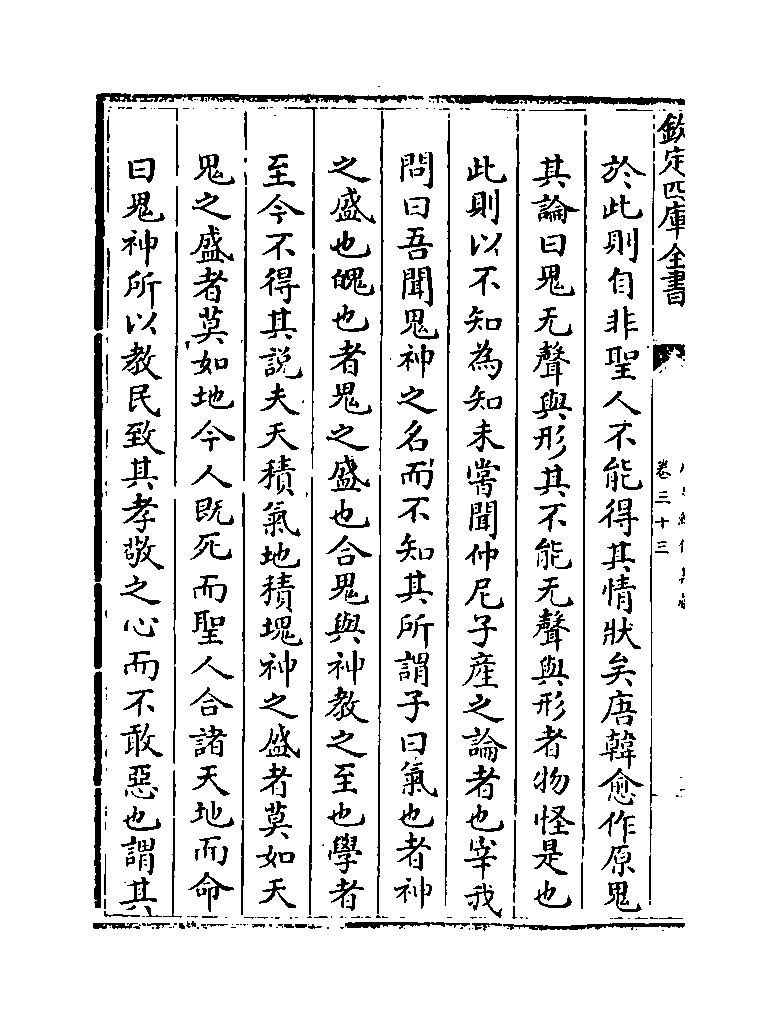 欽定四庫全書
卷三十三
於此則自非聖人不能得其情狀矣唐韓愈作原鬼
其論曰鬼无聲與形其不能无聲與形者物怪是也
此則以不知為知未嘗聞仲尼子產之論者也宰我
問曰吾聞鬼神之名而不知其所謂子曰氣也者神
之盛也魄也者鬼之盛也合鬼與神教之至也學者
至今不得其説夫天積氣地積塊神之盛者莫如天
鬼之盛者莫如地今人既死而聖人合諸天地而命
曰鬼神所以教民致其孝敬之心而不敢惡也謂其